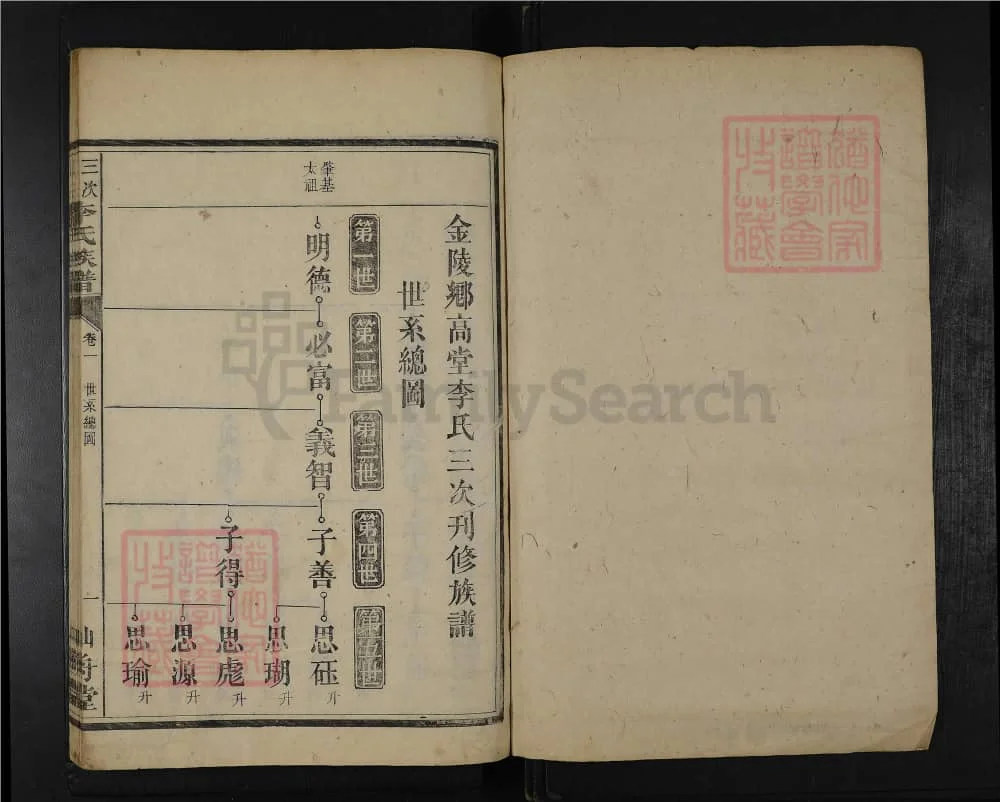 金陵鄉高堂李氏三次刋修族譜
世系總圖
第一世
第二世
第三世
第四世
第五世
肇基
太祖
明德
必富
義智
子善
子得
思砡
升
思瑚
升
思彪
升
思源
升
思瑜
升
三次李氏族譜
卷一
世系總圖
一
仙舟堂
譜學會
FamilySearch